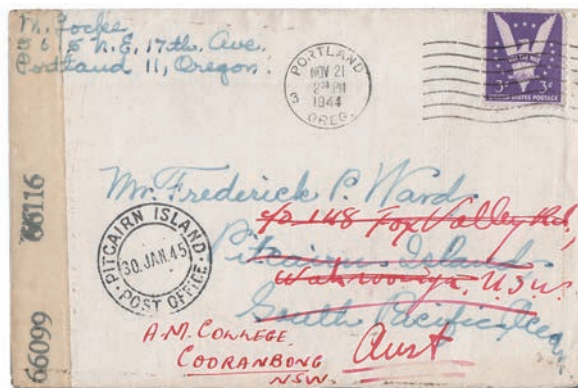 M. Jocke
5615 N.E. 17th. Ave.
Portland 11, Oregon.
PORTLAND
NOV 21
2 30 PM
1944
3 OREG.
WIN THE WAR
3¢ 3¢
UNITED STATES POSTAGE
66116
66099
Mr. Frederick P. Ward
c/o 148 Fox Valley Rd,
Pitcairn Island
Wahroonga. N.S.W.
South Pacific Ocean
Aust
PITCAIRN ISLAND
30. JAN. 45
POST OFFICE
A.M. COLLEGE.
COORANBONG
NSW.